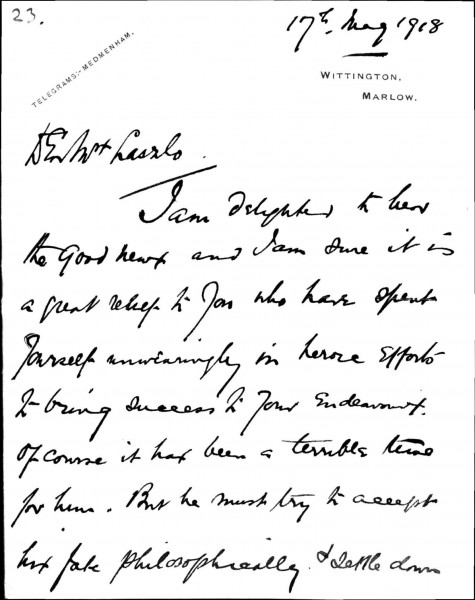 23.
17th May 1918
TELEGRAMS:- MEDMENHAM.
WITTINGTON,
MARLOW.
Dear Mrs Laszlo.
I am delighted to hear
the Good news and I am sure it is
a great relief to you who have spent
yourself unwearingly in heroic Efforts
to bring success to your Endeavours.
Of course it has been a terrible time
for him. But he must try to accept
his fate philosophically & settle down